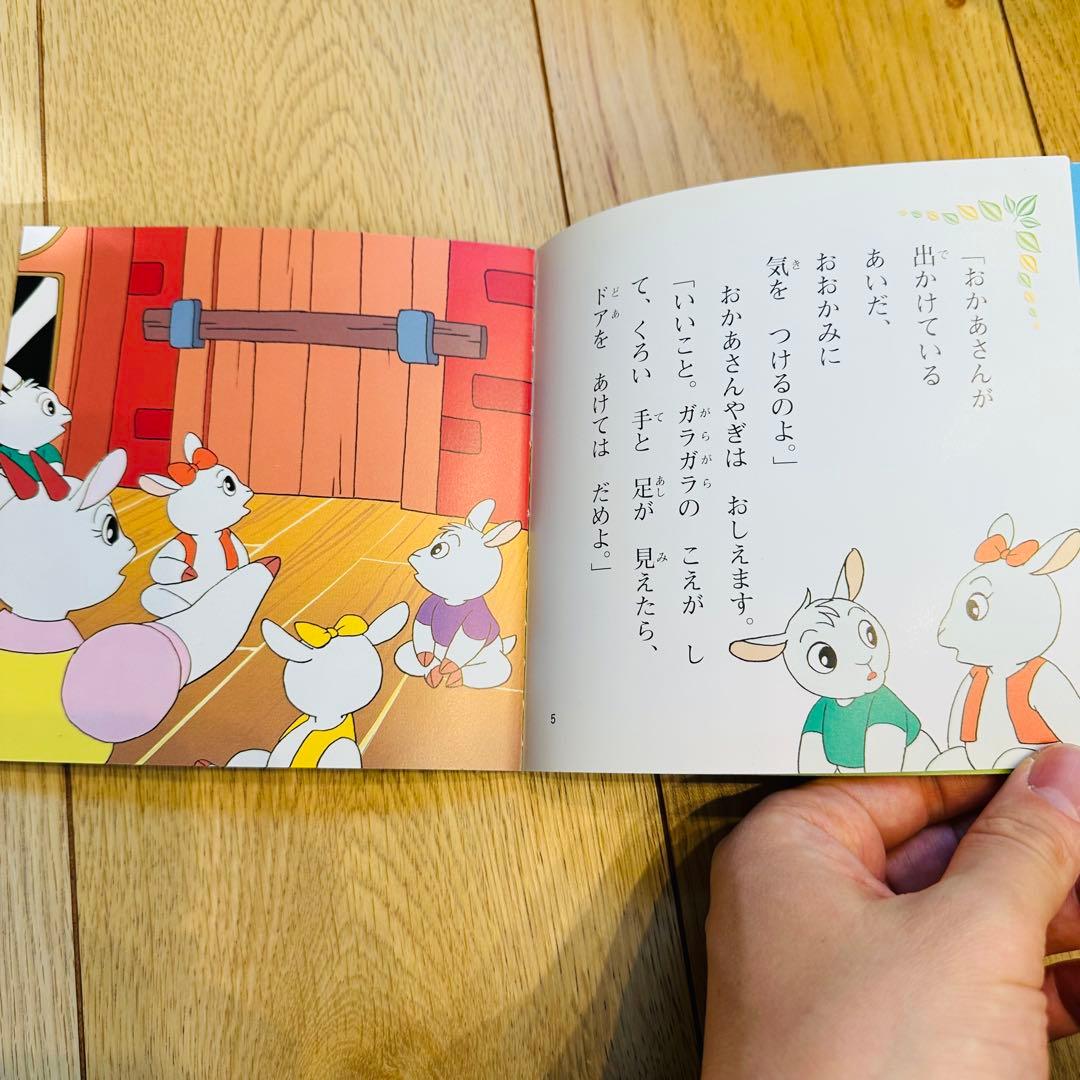 「おかあさんが
出かけている
あいだ、
おおかみに
気を つけるのよ。」
おかあさんやぎは おしえます。
「いいこと。ガラガラの こえが し
て、くろい 手と 足が 見えたら、
ドアを あけては だめよ。」
5